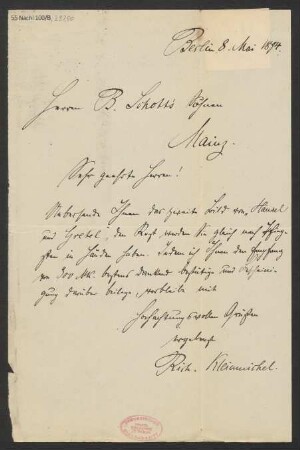 55 Nachl 100/B,
Berlin 8. Mai 1894.
Herren B. Schott's Söhnen
Mainz.
Sehr geehrte Herren!
Übersende Ihnen das zweite Bild von „Hänsel
und Gretel", den Rest werden Sie gleich nach Pfing-
sten in Händen haben. Indem ich Ihnen den Empfang
von 300 Mk. bestens dankend bestätige und
beilege, verbleibe mit
hochachtungsvollen Grüßen
ergebenst
Rich. Kleinmichel.